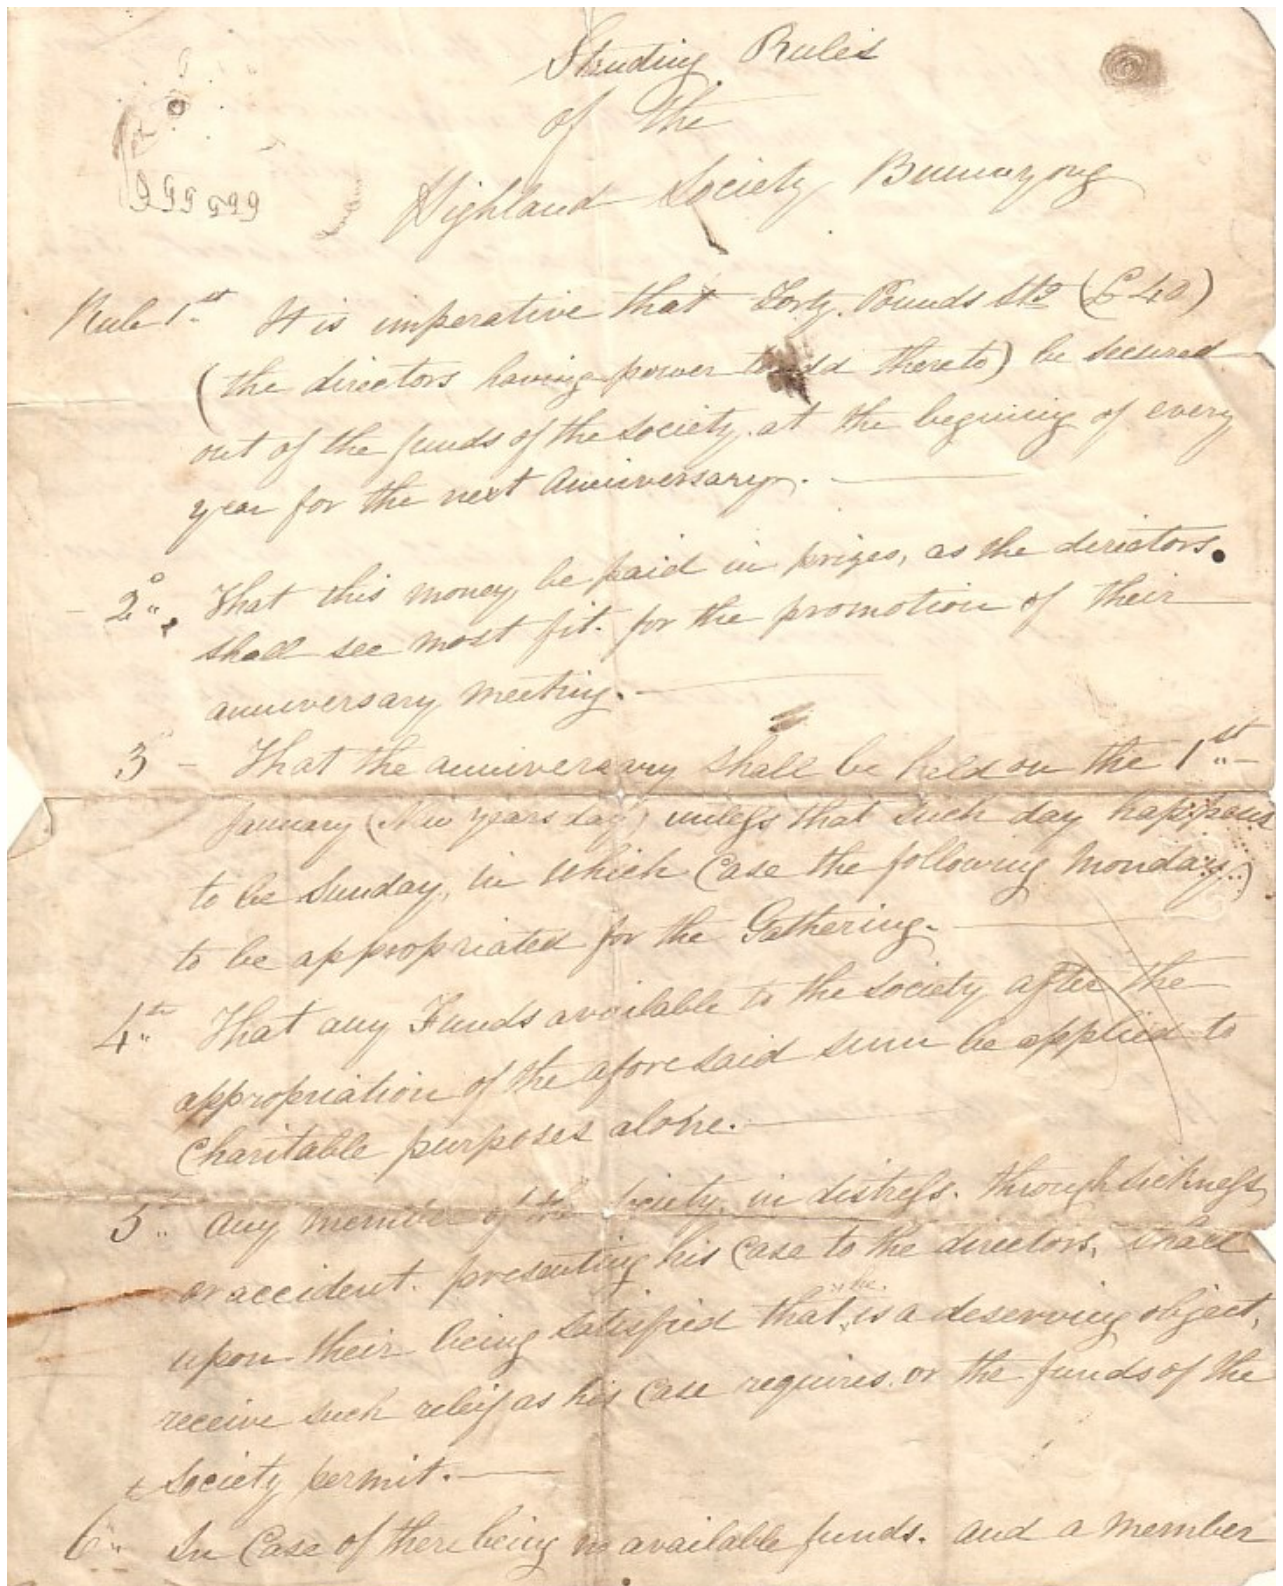 Standing Rules
of the
Highland Society Buninyong
Rule 1st It is imperative that Forty Pounds Stg (£40)
(the directors having power to add thereto) be secured
out of the funds of the society at the begining of every
year for the next Anniversary.
2 That this money be paid in prizes, as the directors
shall see most fit for the promotion of their
anniversary meeting.
3 - That the anniversary shall be held on the 1st
January (New years day) unless that such day happens
to be Sunday, in which Case the following Monday
to be appropriated for the Gathering.
4th That any Funds available to the society after the
appropriation of the afore said sum be applied to
Charitable purposes alone.
5 Any member of the society, in distress. through sickness
or accident. presenting his Case to the directors, shall
he
upon their being satisfied that is a deserving object,
receive such releif as his Case requires. or the funds of the
Society permit.
6 In Case of there being no available funds. and a member